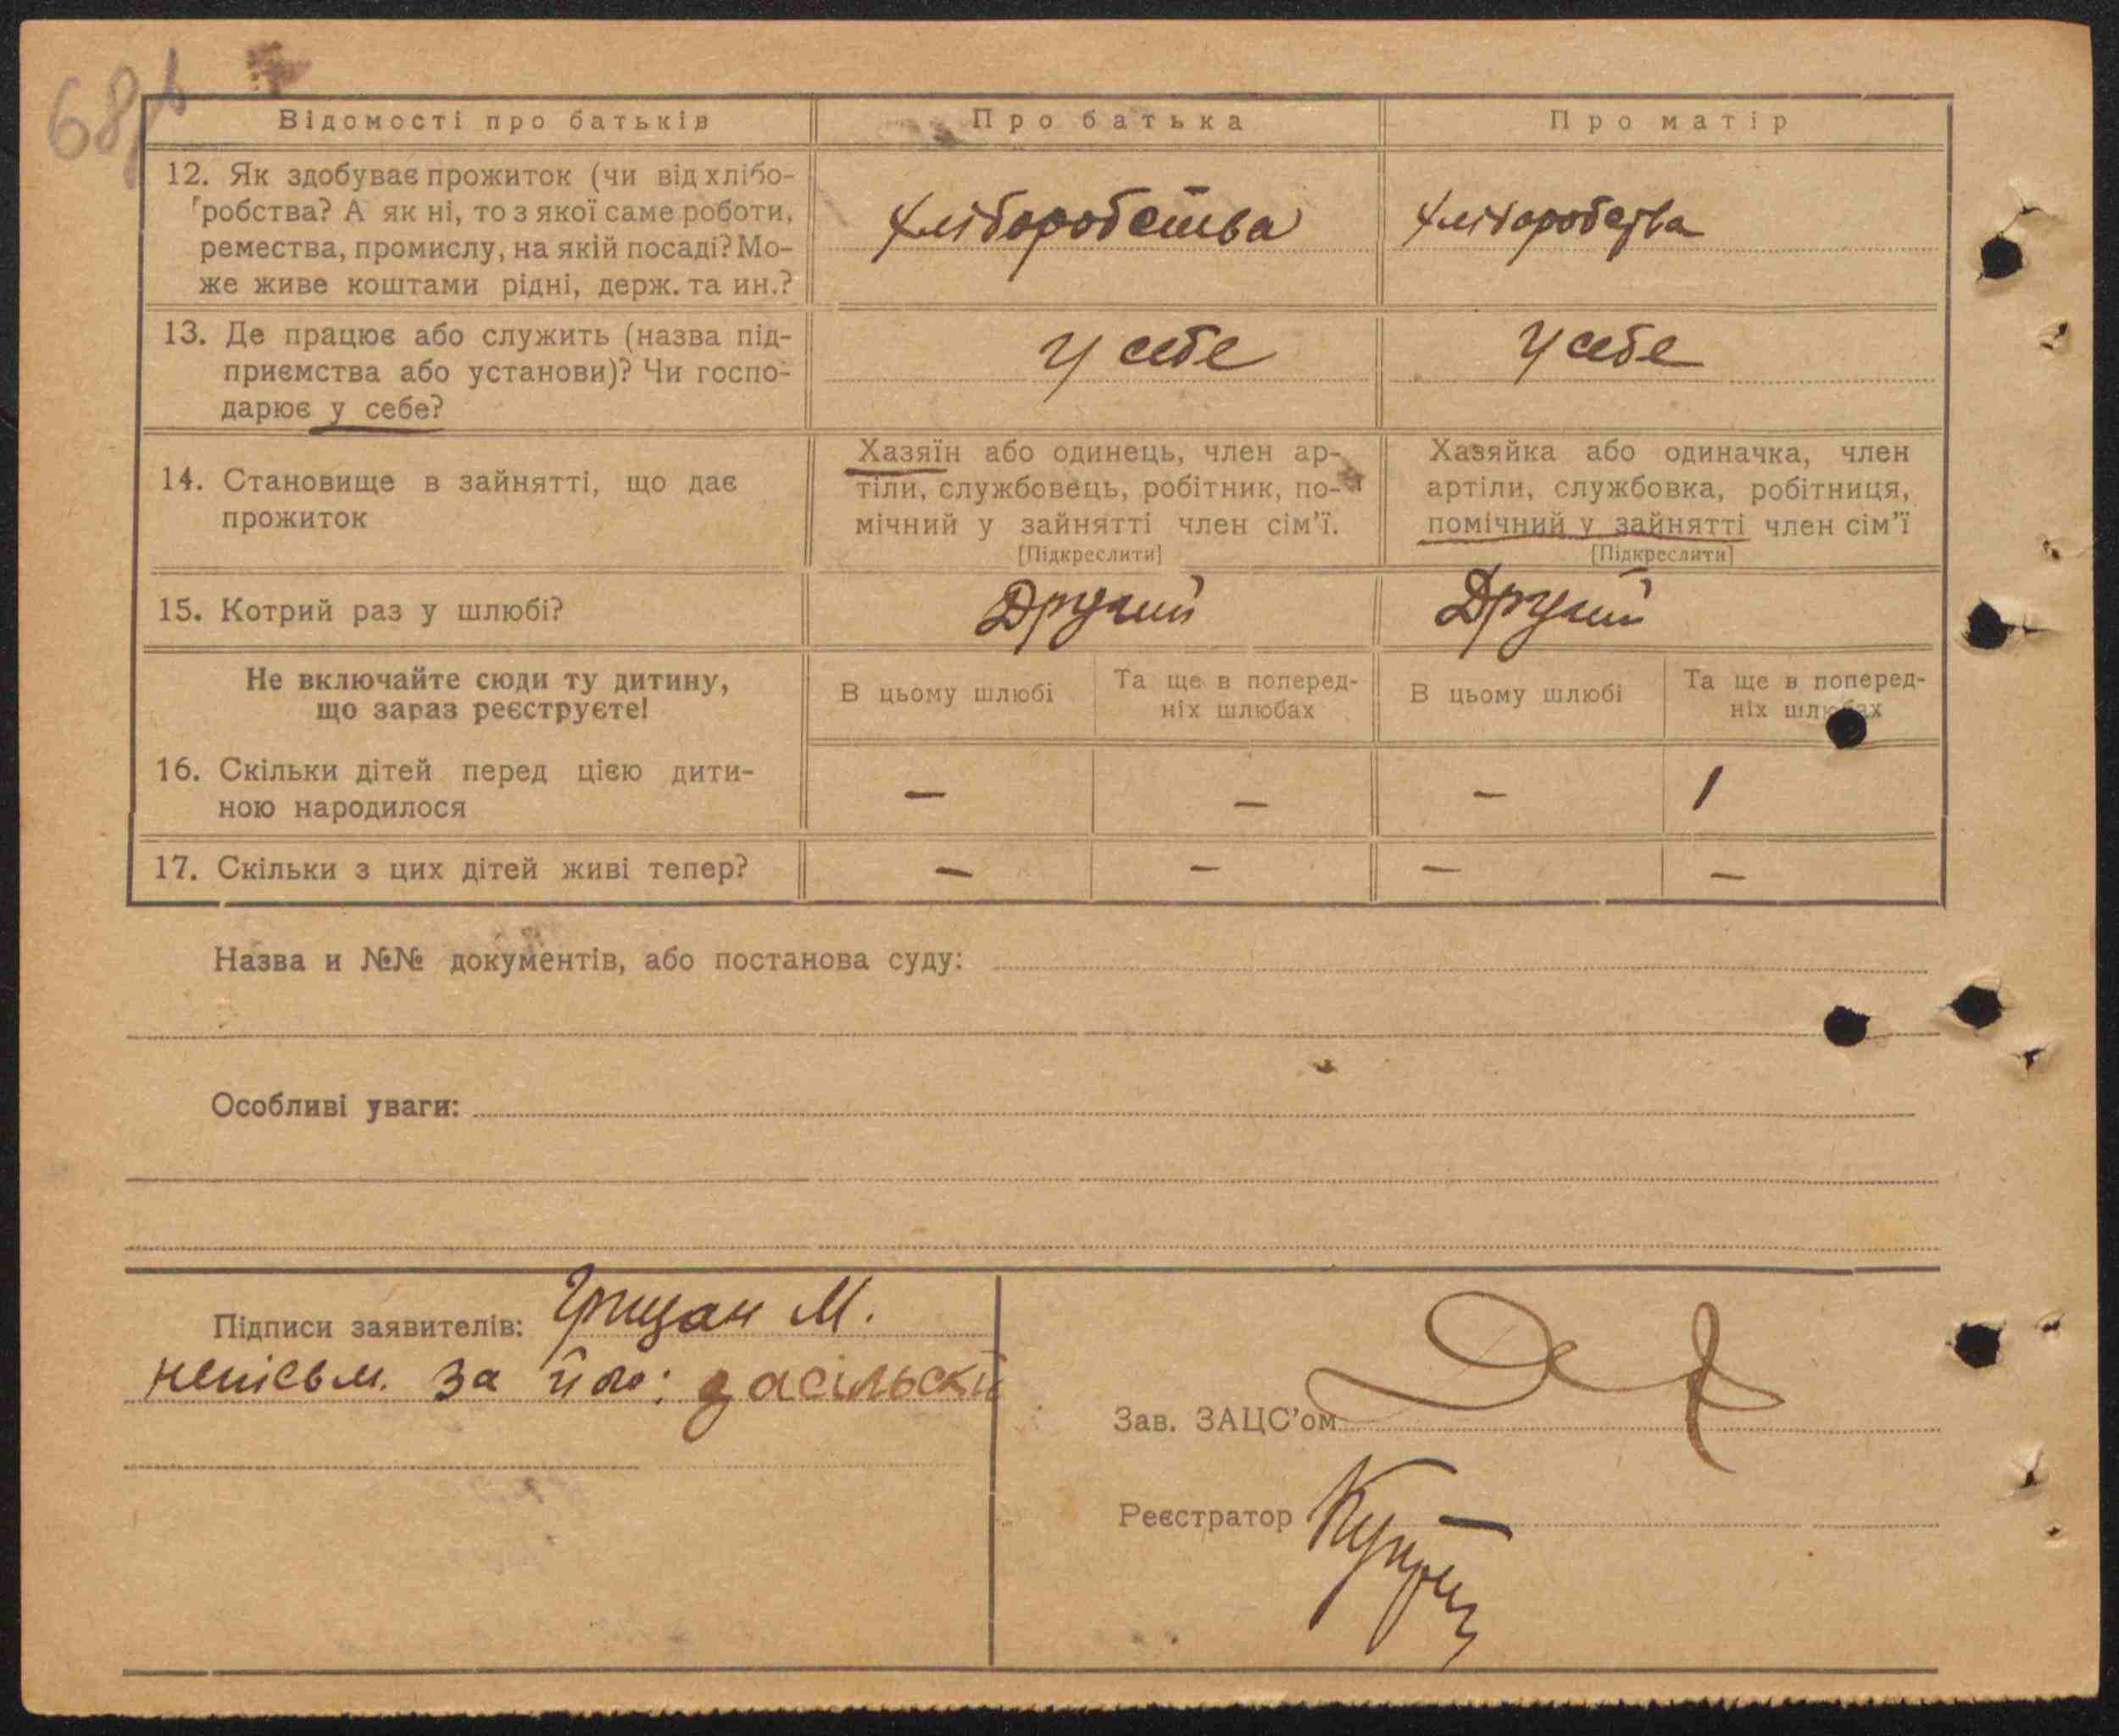 68
Відомості про батьків Про батька Про матір
12. Як здобуває прожиток (чи від хлібо-
робства? А як ні, то з якої саме роботи,
ремества, промислу, на якій посаді? Мо-
же живе коштами рідні, держ. та ин.?
хліборобства хліборобства
13. Де працює або служить (назва під-
приємства або установи)? Чи госпо-
дарює у себе?
у себе у себе
14. Становище в зайнятті, що дає
прожиток
Хазяїн або одинець, член ар-
тіли, службовець, робітник, по-
мічний у зайнятті член сім’ї.
[Підкреслити]
Хазяйка або одиначка, член
артіли, службовка, робітниця,
помічний у зайнятті член сім’ї
[Підкреслити]
15. Котрий раз у шлюбі? Другий Другий
Не включайте сюди ту дитину,
що зараз реєструєте!
В цьому шлюбі
Та ще в поперед-
ніх шлюбах
В цьому шлюбі
Та ще в поперед-
ніх шлюбах
16. Скільки дітей перед цією дити-
ною народилося
— — — 1
17. Скільки з цих дітей живі тепер? — — — —
Назва и №№ документів, або постанова суду:
Особливі уваги:
Підписи заявителів: Грицан М.
неписьм. за його:
Зав. ЗАЦС’ом
Реєстратор